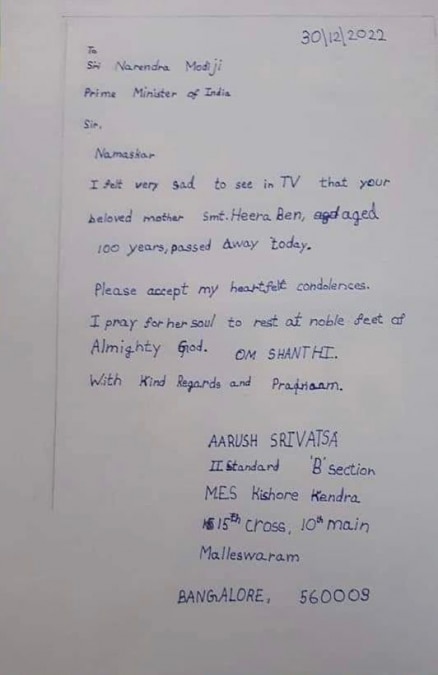 30/12/2022
To
Sri Narendra Modiji
Prime Minister of India
Sir,
Namaskar
I felt very sad to see in TV that your
beloved mother Smt. Heera Ben, aged
100 years, passed away today.
Please accept my heartfelt condolences.
I pray for her soul to rest at noble feet of
Almighty God. OM SHANTHI.
With Kind Regards and Pranaam.
AARUSH SRIVATSA
II Standard 'B' section
MES Kishore Kendra
15th cross, 10th main
Malleswaram
BANGALORE, 560003